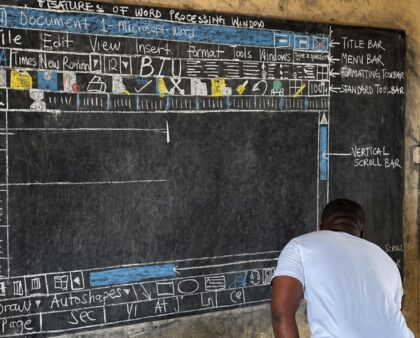 FEATURES OF WORD PROCESSING WINDOW
Document 1-Microsoft Word
TITLE BAR
File Edit View Insert Format Tools Windows Type a question
MENU BAR
Times New Roman 12 B I U
FORMATTING TOOLBAR
100%
STANDARD TOOLBAR
VERTICAL
SCROLL BAR
SCROLL
Draw Autoshapes
Page Sec 1/1 At